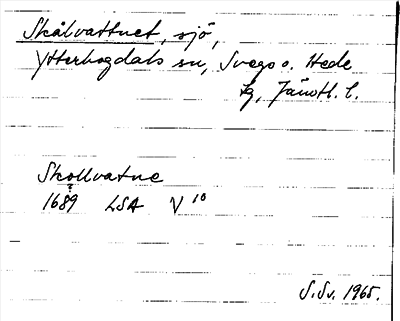 Skålvattnet, sjö,
Ytterhogdals sn, Svegs o. Hede
tg, Jämtl. l.
Skollvatne
1689 LSA V 10
S.Sv. 1965.